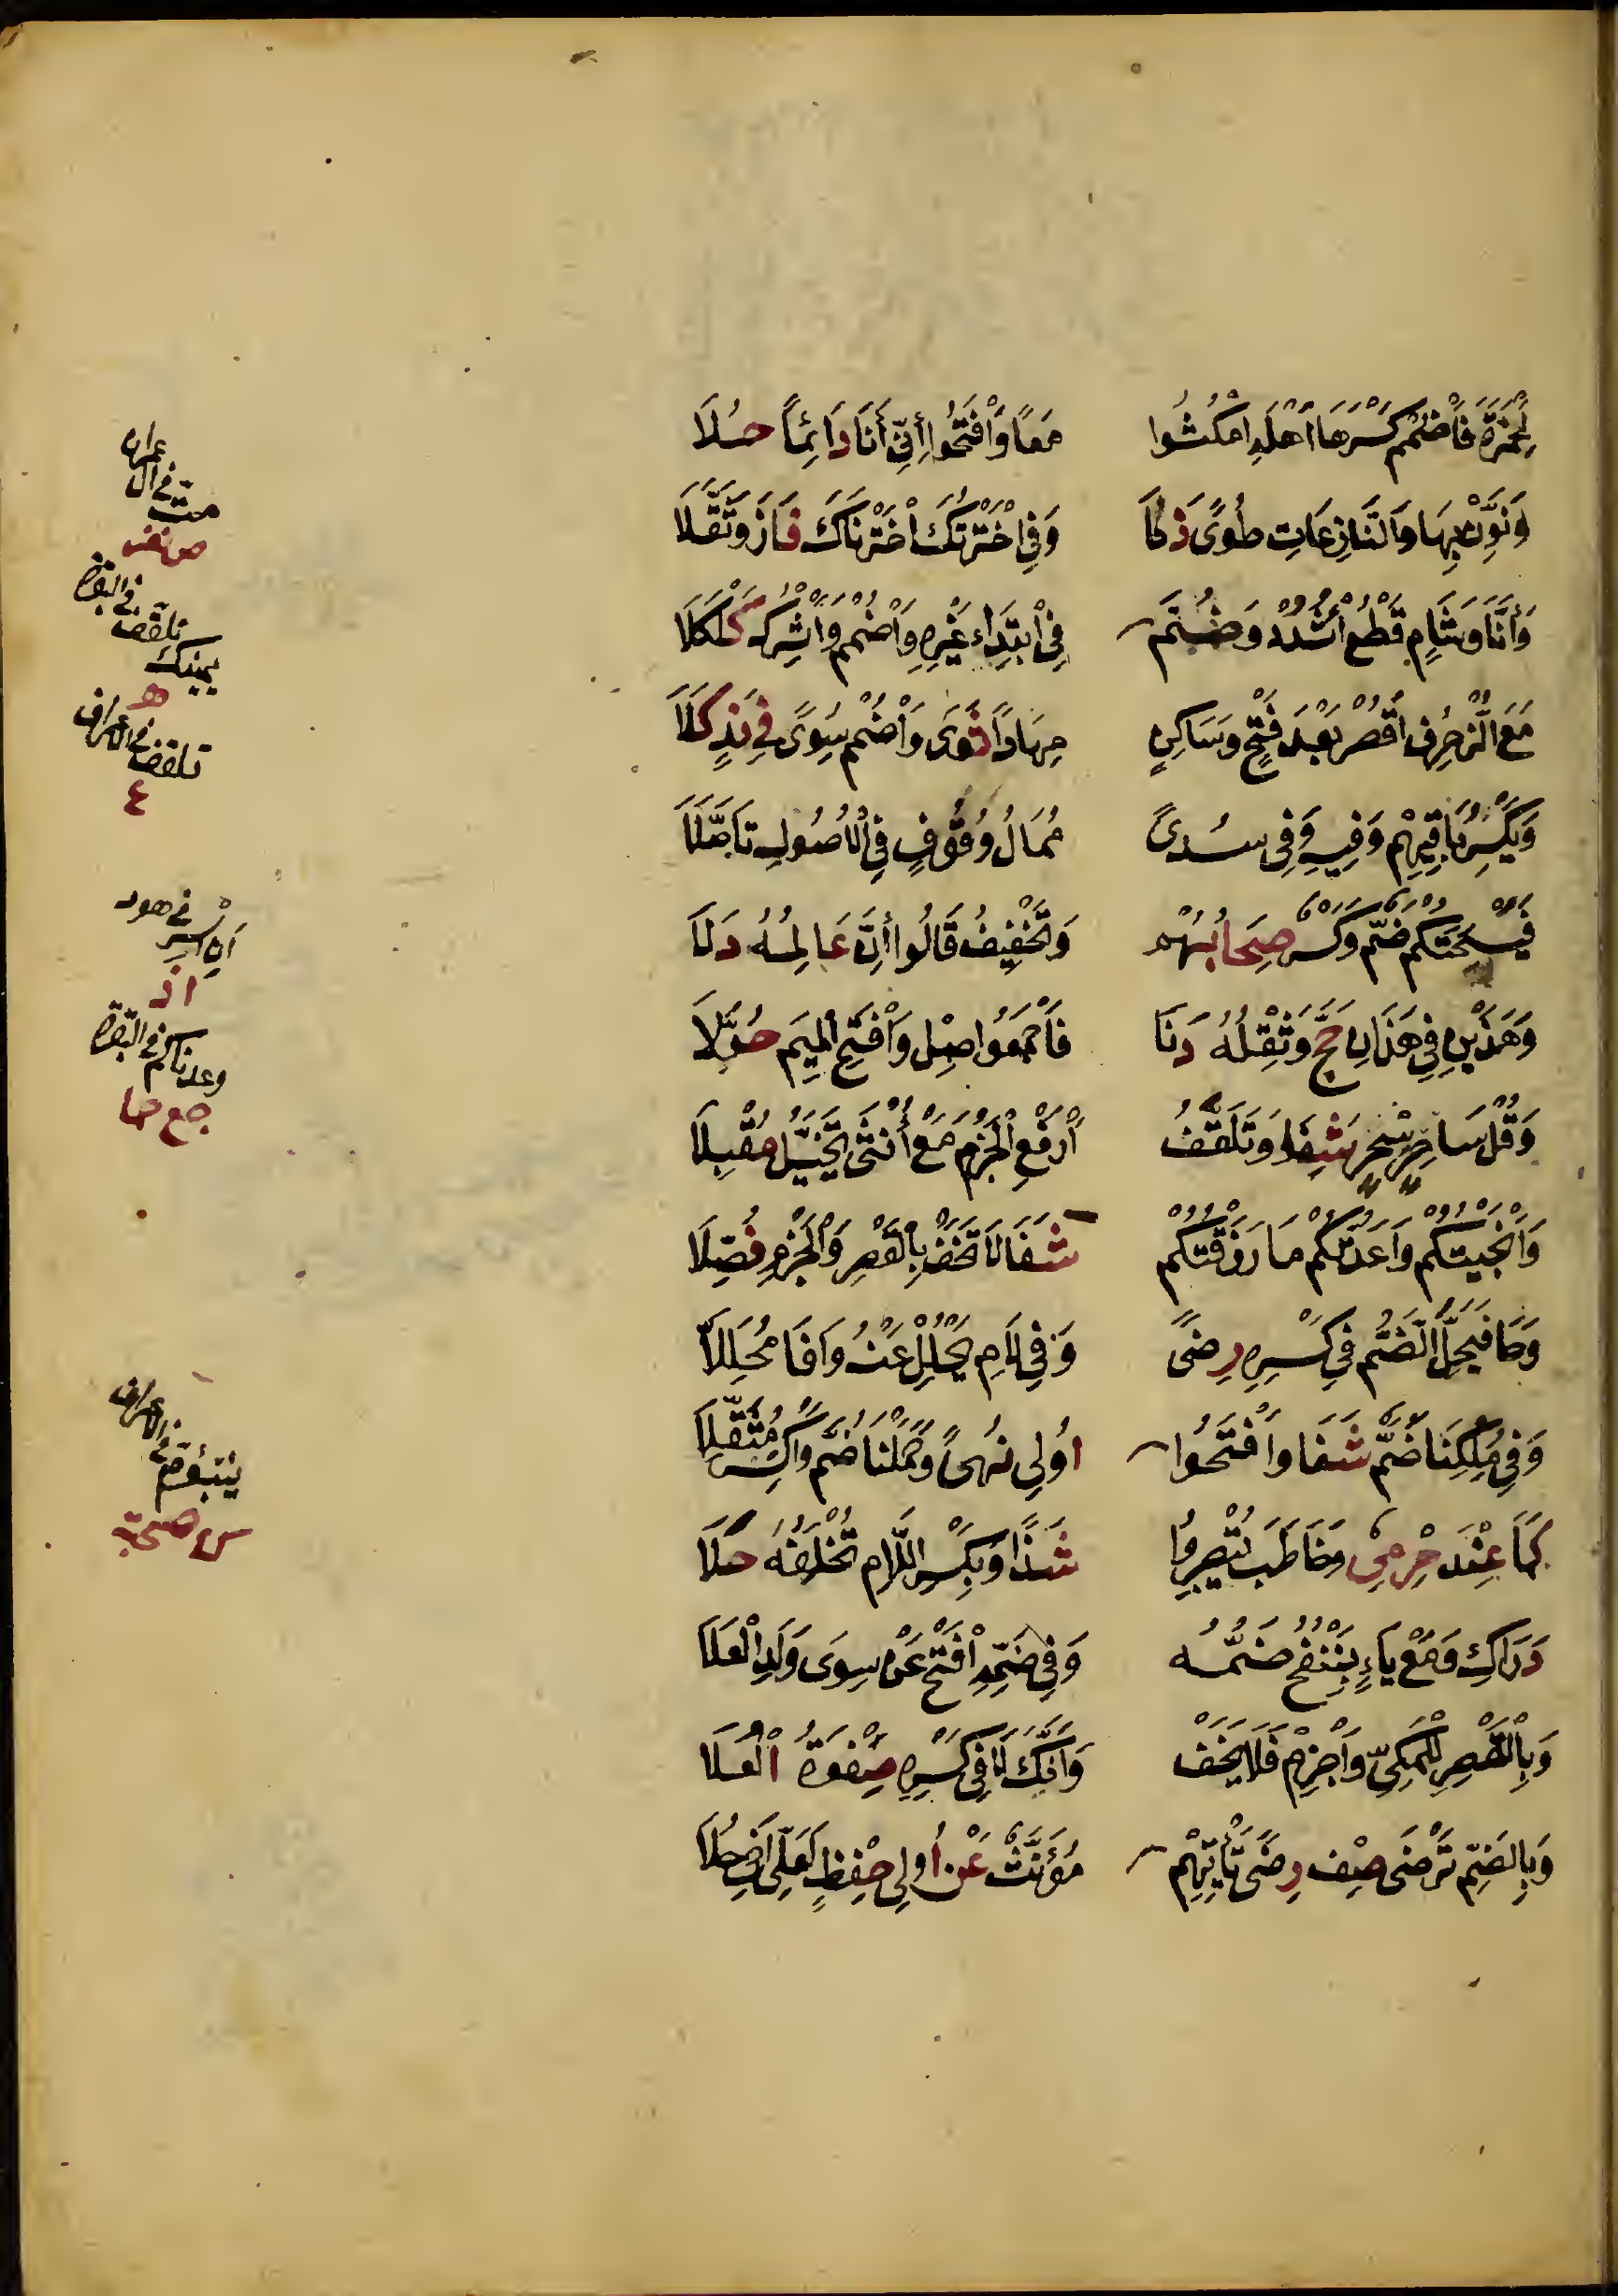 لِحَمْزَةَ فَاضْمُمْ كَسْرَهَا اَهْلِهِ امْكُثُوا مَعًا وَافْتَحُوا إِنِّي أَنَا دَائِمًا حُلَا
وَنَوِّنْ بِهَا وَالنَّازِعَاتِ طُوًى ذَكَا وَفِي اخْتَرْتُكَ اخْتَرْنَاكَ فَازَ وَثَقَّلَا
وَأَنَّا وَشَامٍ قَطْعُ أَشْدُدْ وَضُمَّ فِي ابْتِدَاءِ غَيْرِهِ وَاضْمُمْ وَأَشْرِكْهُ كَلْكَلَا
مَعَ الزُّخْرُفِ اقْصُرْ بَعْدَ فَتْحٍ وَسَاكِنٍ مِهَادًا ثَوَى وَاضْمُمْ سِوًى فِي نَدٍ كَلَا
وَيَكْسِرُ بَاقِيهِمْ وَفِيهِ وَفِي سُدًى مُمَالُ وُقُوفٍ فِي الْأُصُولِ تَأَصَّلَا
فَيُسْحِتَكُمْ ضَمٌّ وَكَسْرٌ صِحَابُهُمْ وَتَخْفِيفُ قَالُوا إِنَّ عَالِمُهُ دَلَا
وَهَذَيْنِ فِي هَذَانِ حَجَّ وَثِقْلُهُ دَنَا فَاجْمَعُوا صِلْ وَافْتَحِ الْمِيمَ حُوَّلَا
وَقُلْ سَاحِرٍ سِحْرٍ شَفَا وَتَلَقَّفُ ارْفَعِ الْجَزْمَ مَعْ أُنْثَى تَخَيَّلُ مُقْبِلَا
وَأَنْجَيْتُكُمْ وَاعَدْتُكُمْ مَا رَزَقْتُكُمْ شَفَا لَا تَخَفْ بِالْقَصْرِ وَالْجَزْمِ فُصِّلَا
وَحَا فَيَحِلَّ الضَّمُّ فِي كَسْرِهِ رِضًى وَفِي لَامِ يَحْلِلْ عَنْهُ وَافَا مُحَلِّلَا
وَفِي مُلْكِنَا ضَمٌّ شَفَا وَافْتَحُوا اُولِي نُهًى وَحَمَلْنَا ضُمَّ وَاكْسِرْ مُثَقِّلَا
كَمَا عِنْدَ حِرْمِيٍّ وَخَاطَبَ تُبْصِرُوا شَذًا وَبِكَسْرِ اللَّامِ تُخْلِفُهُ حَلَا
دَرَاكِ وَمَعْ يَاءٍ بِنَنْفُخُ ضَمُّهُ وَفِي ضَمِّهِ افْتَحْ عَنْ سِوَى وَلَدِ الْعَلَا
وَبِالْقَصْرِ لِلْمَكِّيِّ وَاجْزِمْ فَلَا يَخَفْ وَأَنَّكَ لَا فِي كَسْرِهِ صَفْوَةُ الْعُلَا
وَبِالضَّمِّ تَرْضَى صِفْ رِضًى تَأْتِهِمْ مُؤَنَّثْ عَنْ أُولِي حِفْظٍ لَعَلِّي أَخِي حُلَا
عمران
مت في ال
صر نفر
في البقرة
تلقف
يمينك
تلقف في الاعراف
٤
أن اسر في هود
اذ
وعدناكم في البقرة
في الاعراف